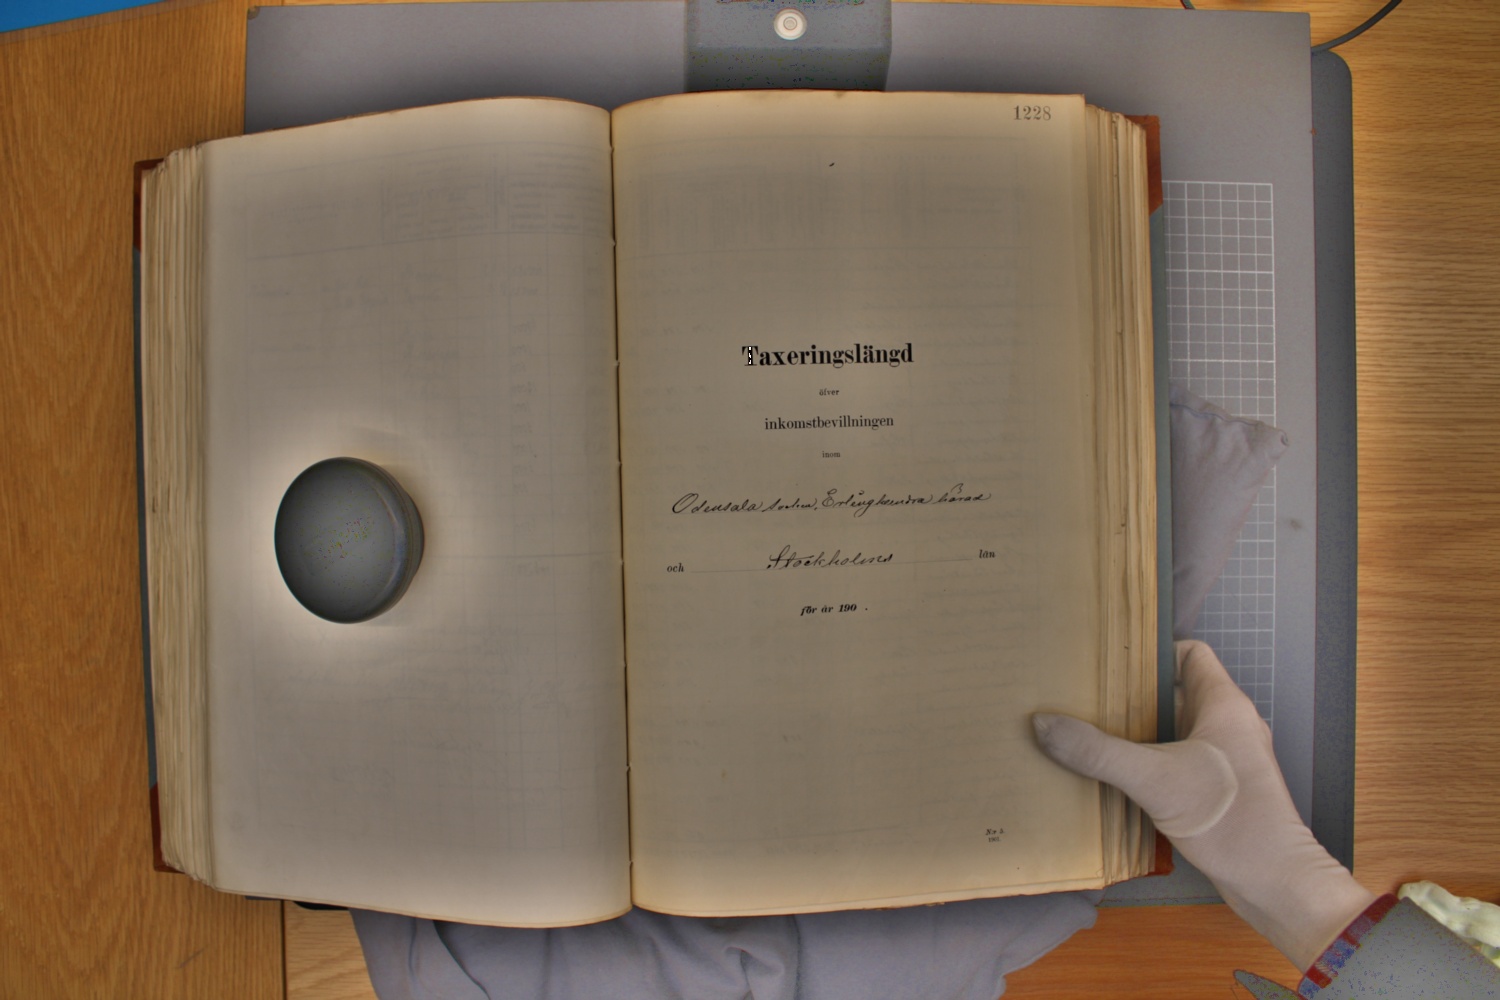 1228
Taxeringslängd
öfver
inkomstbevillningen
inom
Odensala socken, Erlinghundra härad
och Stockholms län
för år 190 .
N:r 5.